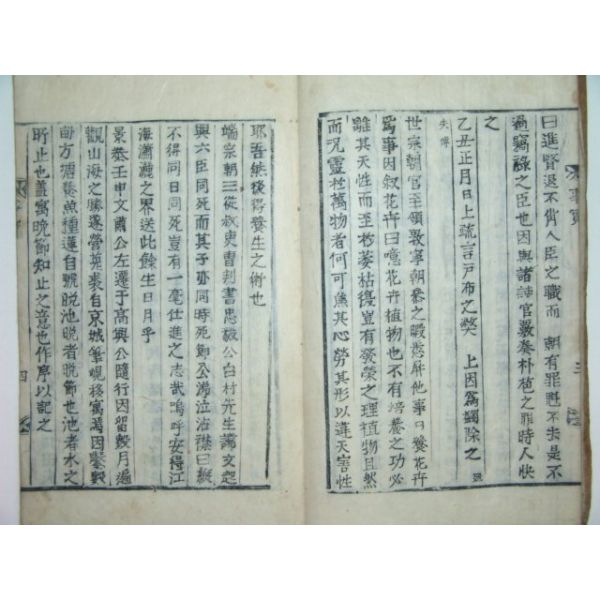 曰進賢退不肖人臣之職而 朝有罪魁不去是不
過竊祿之臣也因與諸諫官嚴奏朴植之罪時人快
之
乙丑正月日上疏言戶布之獘 上因爲蠲除之
世宗朝官至領敦寧朝叅之暇悉屏他事日養花卉
爲事因叙花卉曰噫花卉植物也不有培養之功必
雖其天性而至於萎枯復豈有發榮之理植物且然
而况靈於萬物者何可焦其心勞其形以違天害性
耶吾然後得養生之術也
端宗朝三從叔吏曹判書忠毅公白村先生諱文起
與六臣同死而其子亦同時死節公涕泣沾襟曰縱
不得同日同死豈有一毫仕進之志哉嗚呼安得江
海瀟灑之界送此餘生日月乎
景泰壬申文肅公左遷于高興公隨行因留數月遍
觀山海之勝遂營菟裘自京城筆峴移寓焉因鑿數
畒方塘養魚種蓮自號晩池晩者晩節也池者水之
所止也盖寓晩節知止之意也作序以記之
三
四